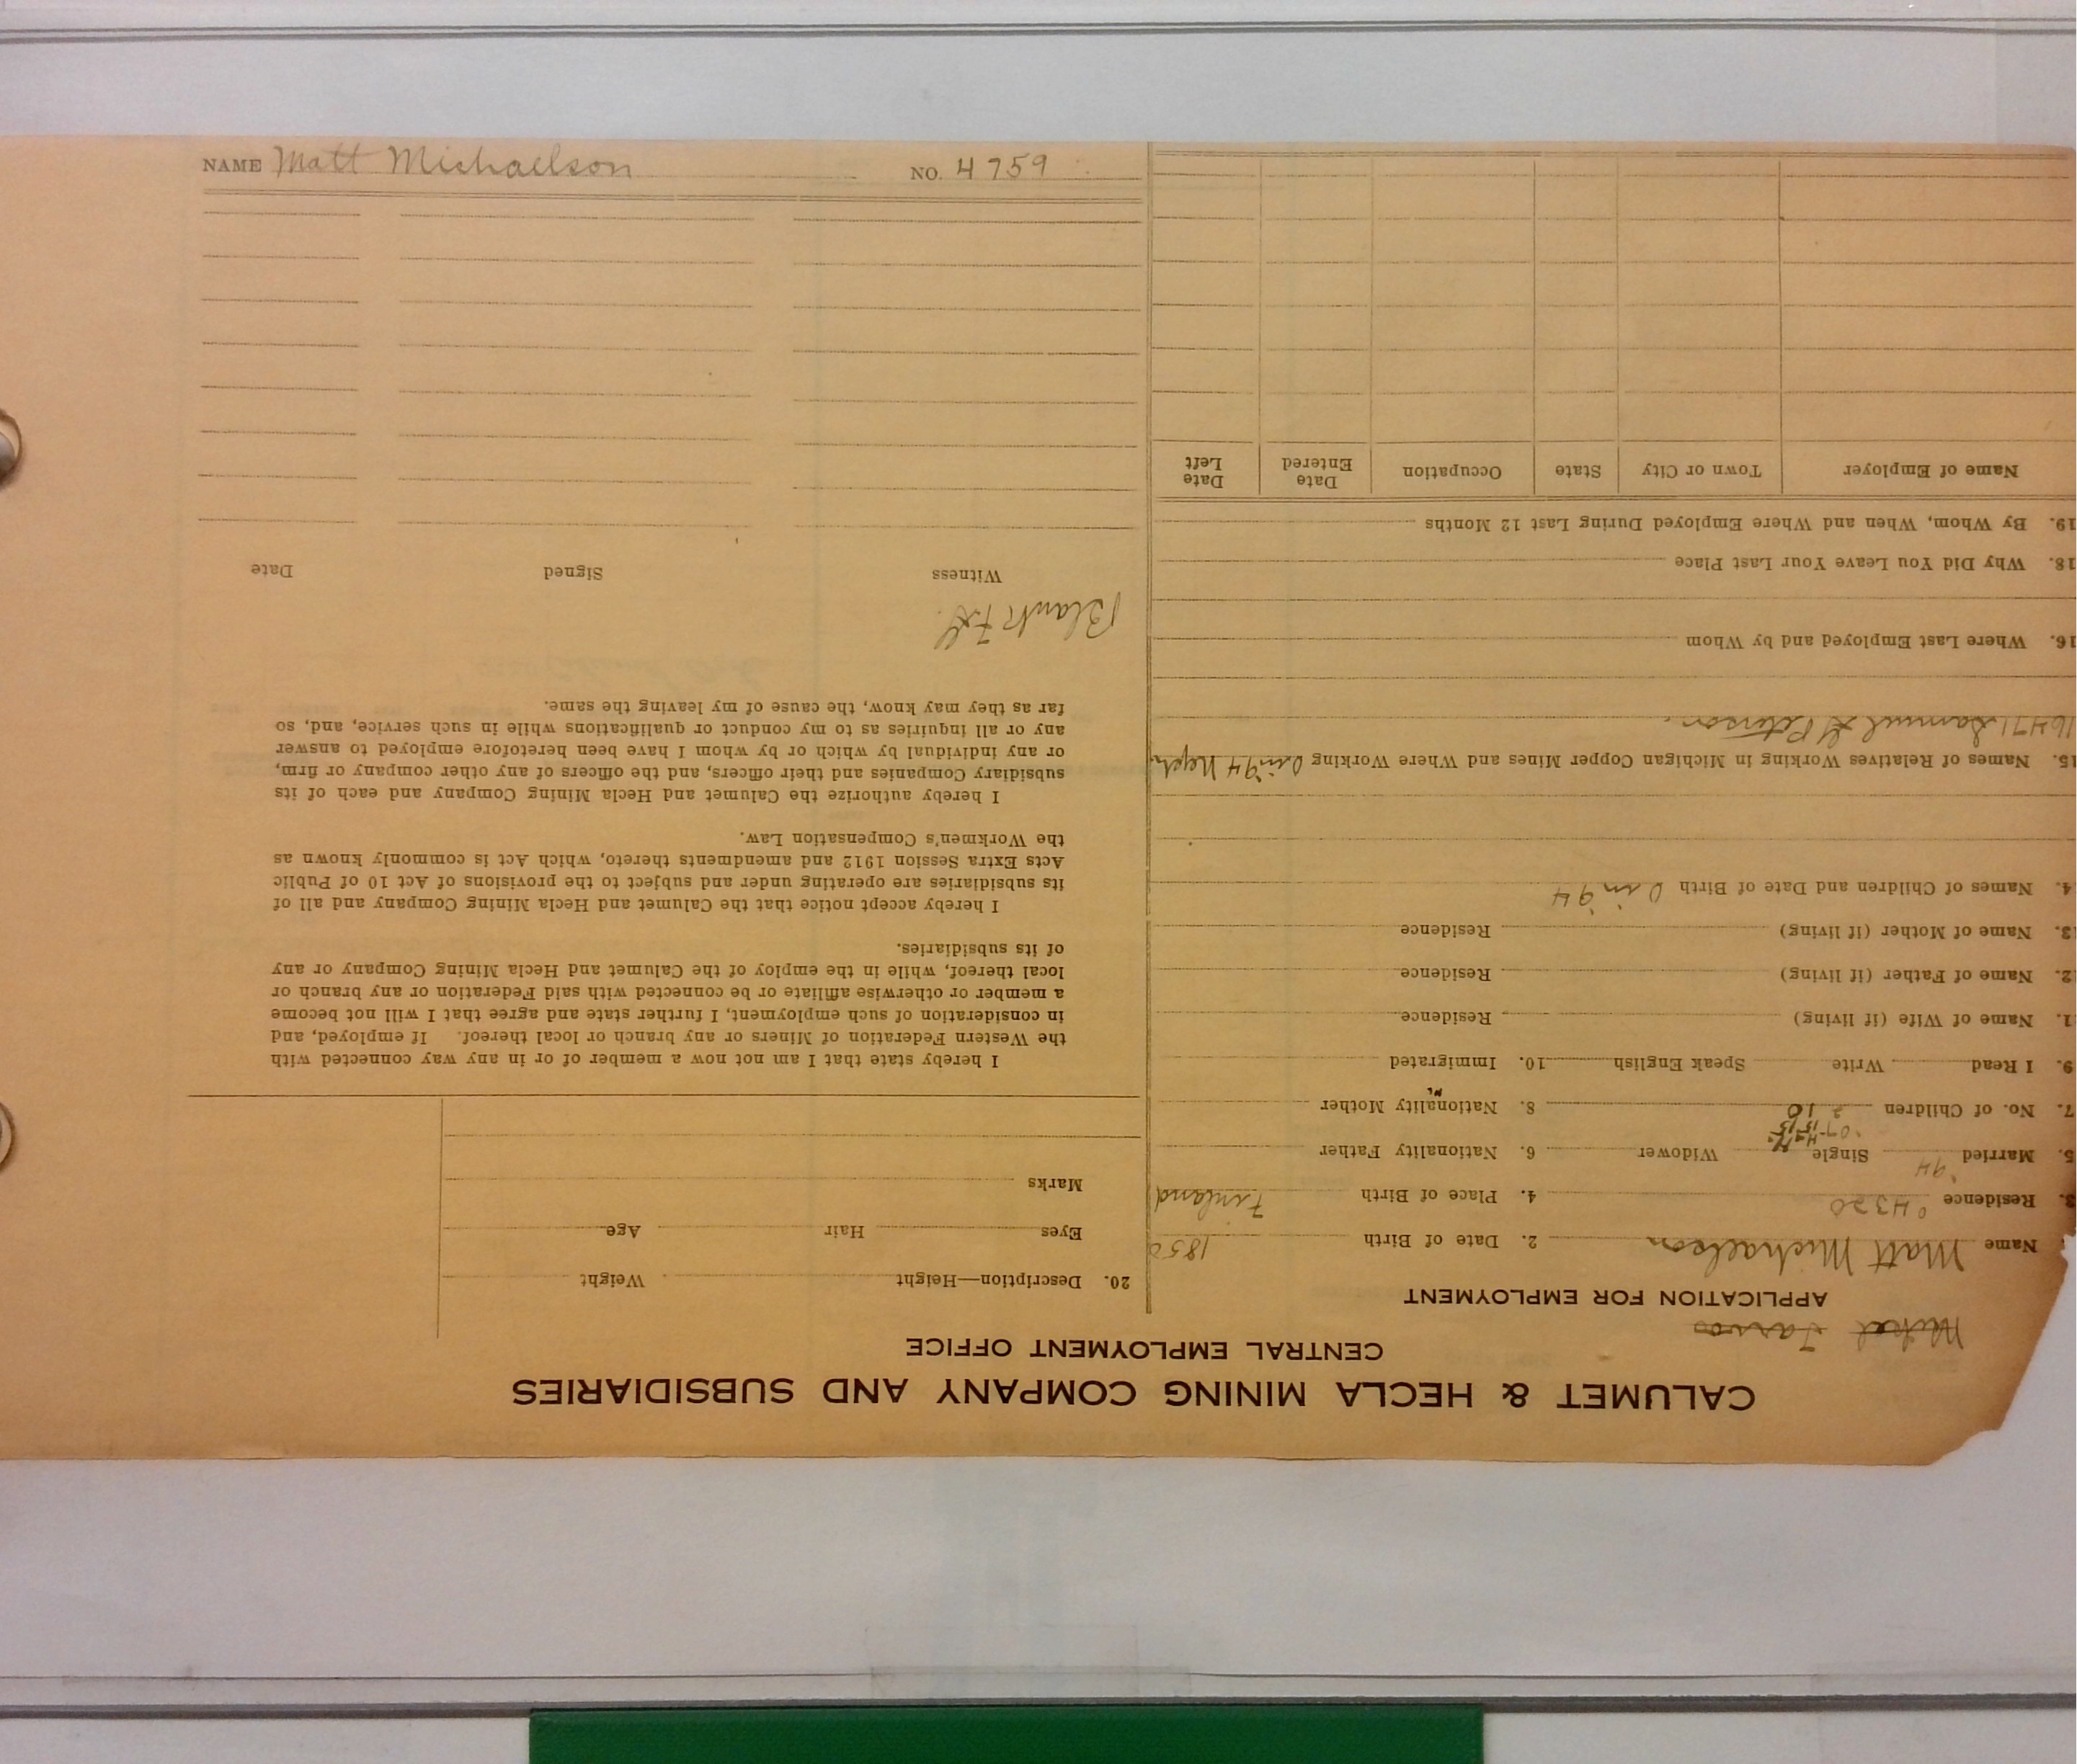 NAME Matt Michaelson NO. 4759
CALUMET & HECLA MINING COMPANY AND SUBSIDIARIES
CENTRAL EMPLOYMENT OFFICE
APPLICATION FOR EMPLOYMENT
Name Matt Michaelson 2. Date of Birth 1850
3. Residence 4320 '94 4. Place of Birth Finland
5. Married Single Widower 6. Nationality Father
7. No. of Children 10 8. Nationality Mother
9. I Read Write Speak English 10. Immigrated
1. Name of Wife (if living) Residence
12. Name of Father (if living) Residence
13. Name of Mother (if living) Residence
4. Names of Children and Date of Birth 0 in '94
15. Names of Relatives Working in Michigan Copper Mines and Where Working 0 in '94
16471 Samuel Peterson
16. Where Last Employed and by Whom
18. Why Did You Leave Your Last Place
19. By Whom, When and Where Employed During Last 12 Months
Name of Employer Town or City State Occupation Date Entered Date Left
20. Description—Height Weight
Eyes Hair Age
Marks
I hereby state that I am not now a member of or in any way connected with
the Western Federation of Miners or any branch or local thereof. If employed, and
in consideration of such employment, I further state and agree that I will not become
a member or otherwise affiliate or be connected with said Federation or any branch or
local thereof, while in the employ of the Calumet and Hecla Mining Company or any
of its subsidiaries.
I hereby accept notice that the Calumet and Hecla Mining Company and all of
its subsidiaries are operating under and subject to the provisions of Act 10 of Public
Acts Extra Session 1912 and amendments thereto, which Act is commonly known as
the Workmen's Compensation Law.
I hereby authorize the Calumet and Hecla Mining Company and each of its
subsidiary Companies and their officers, and the officers of any other company or firm,
or any individual by which or by whom I have been heretofore employed to answer
any or all inquiries as to my conduct or qualifications while in such service, and, so
far as they may know, the cause of my leaving the same.
Blank
Witness Signed Date